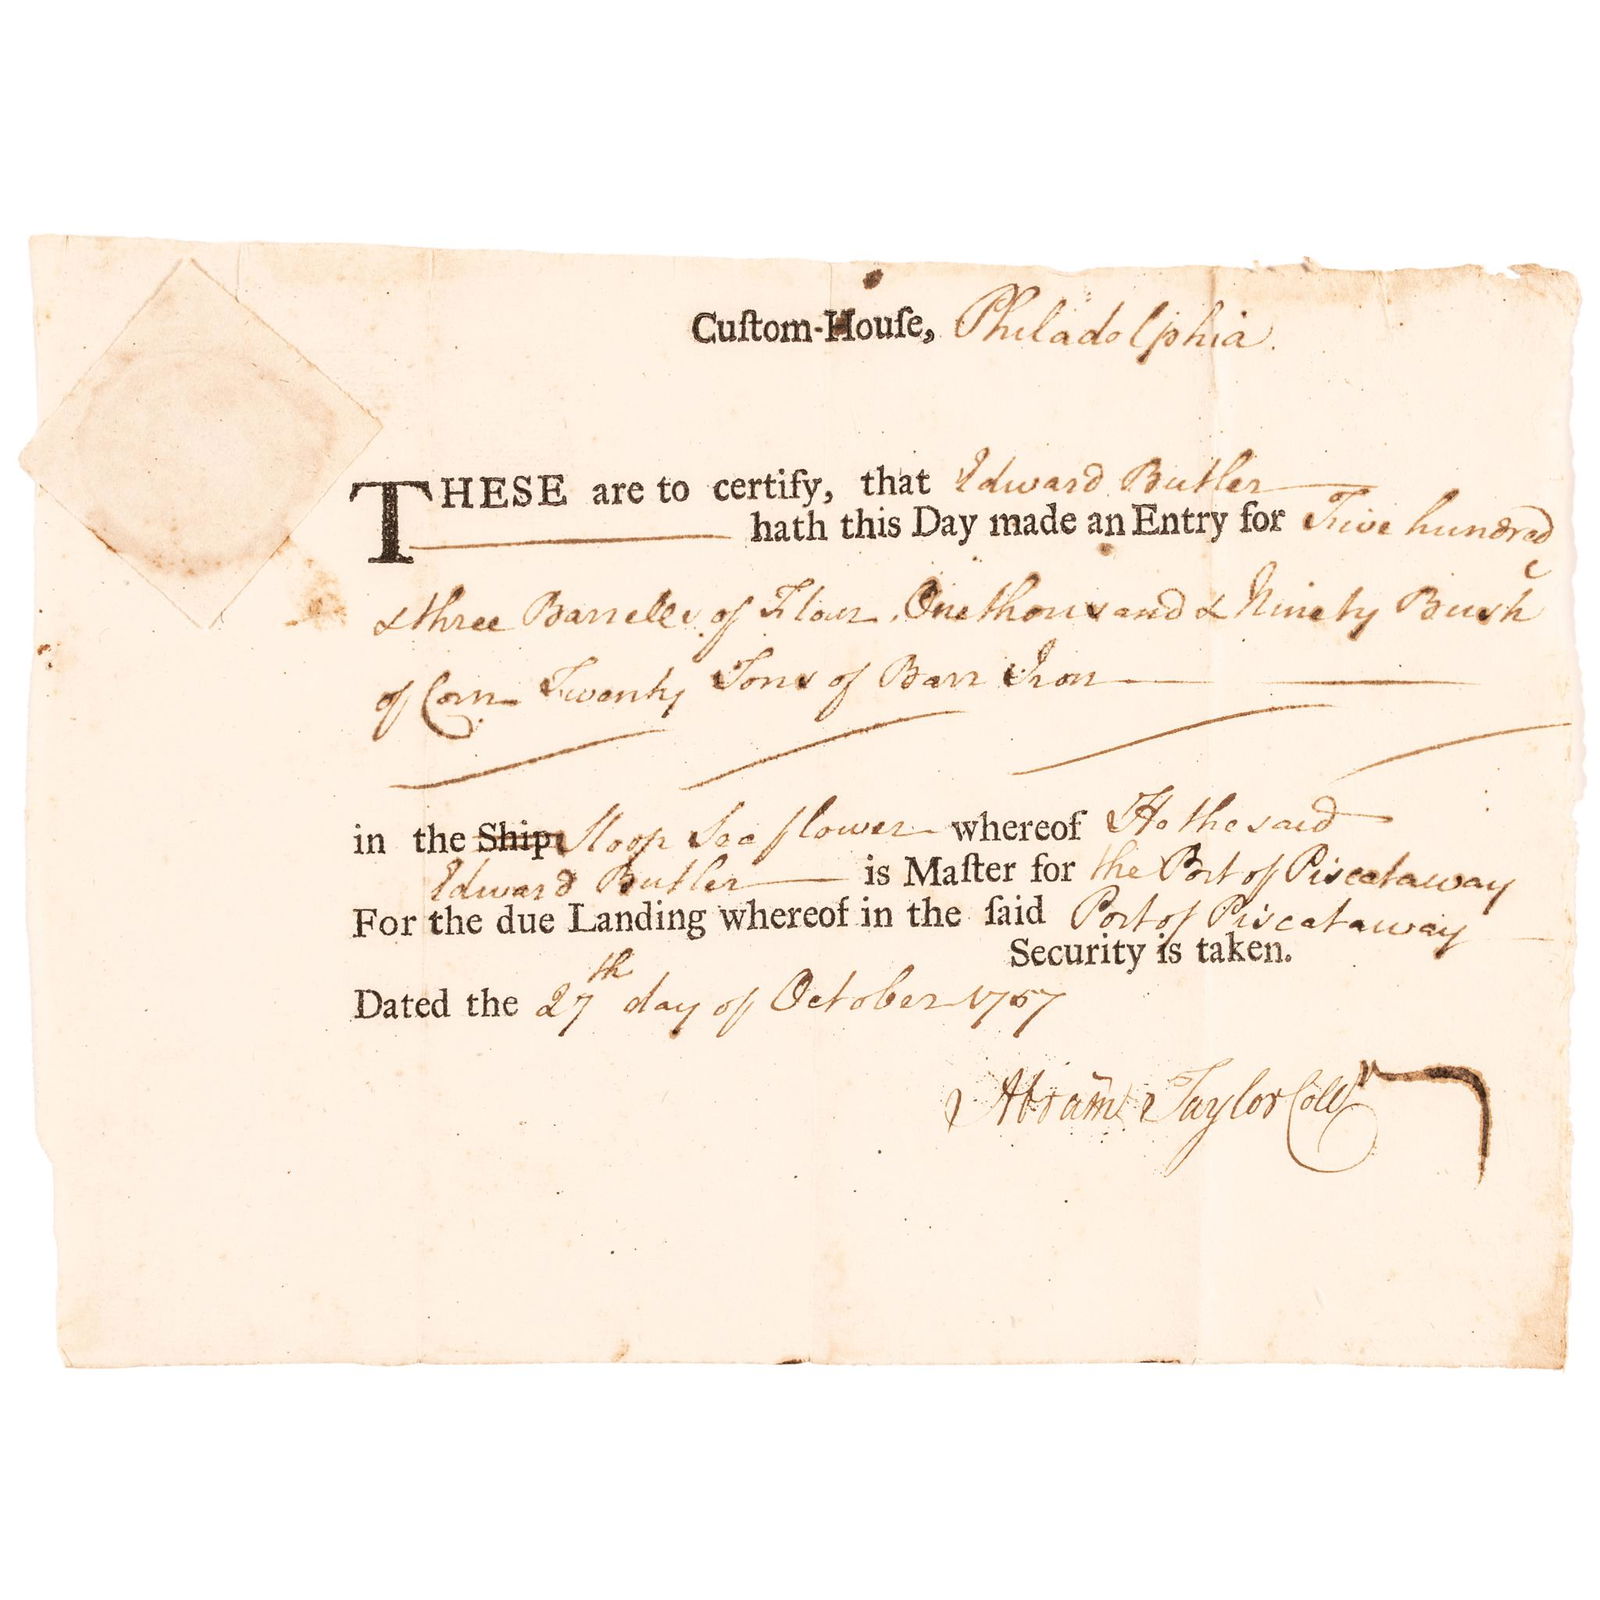 Cuſtom-Houſe, Philadelphia.
THESE are to certify, that Edward Butler
hath this Day made an Entry for Five hundred
& three Barrells of Flour, One thousand & Ninety Bush
of Corn Twenty Tons of Barr Iron
in the Ship Sloop Seaflower whereof He the said
Edward Butler is Maſter for the Port of Piscataway
For the due Landing whereof in the ſaid Port of Piscataway
Security is taken.
Dated the 27th day of October 1757
Abram Taylor Collr